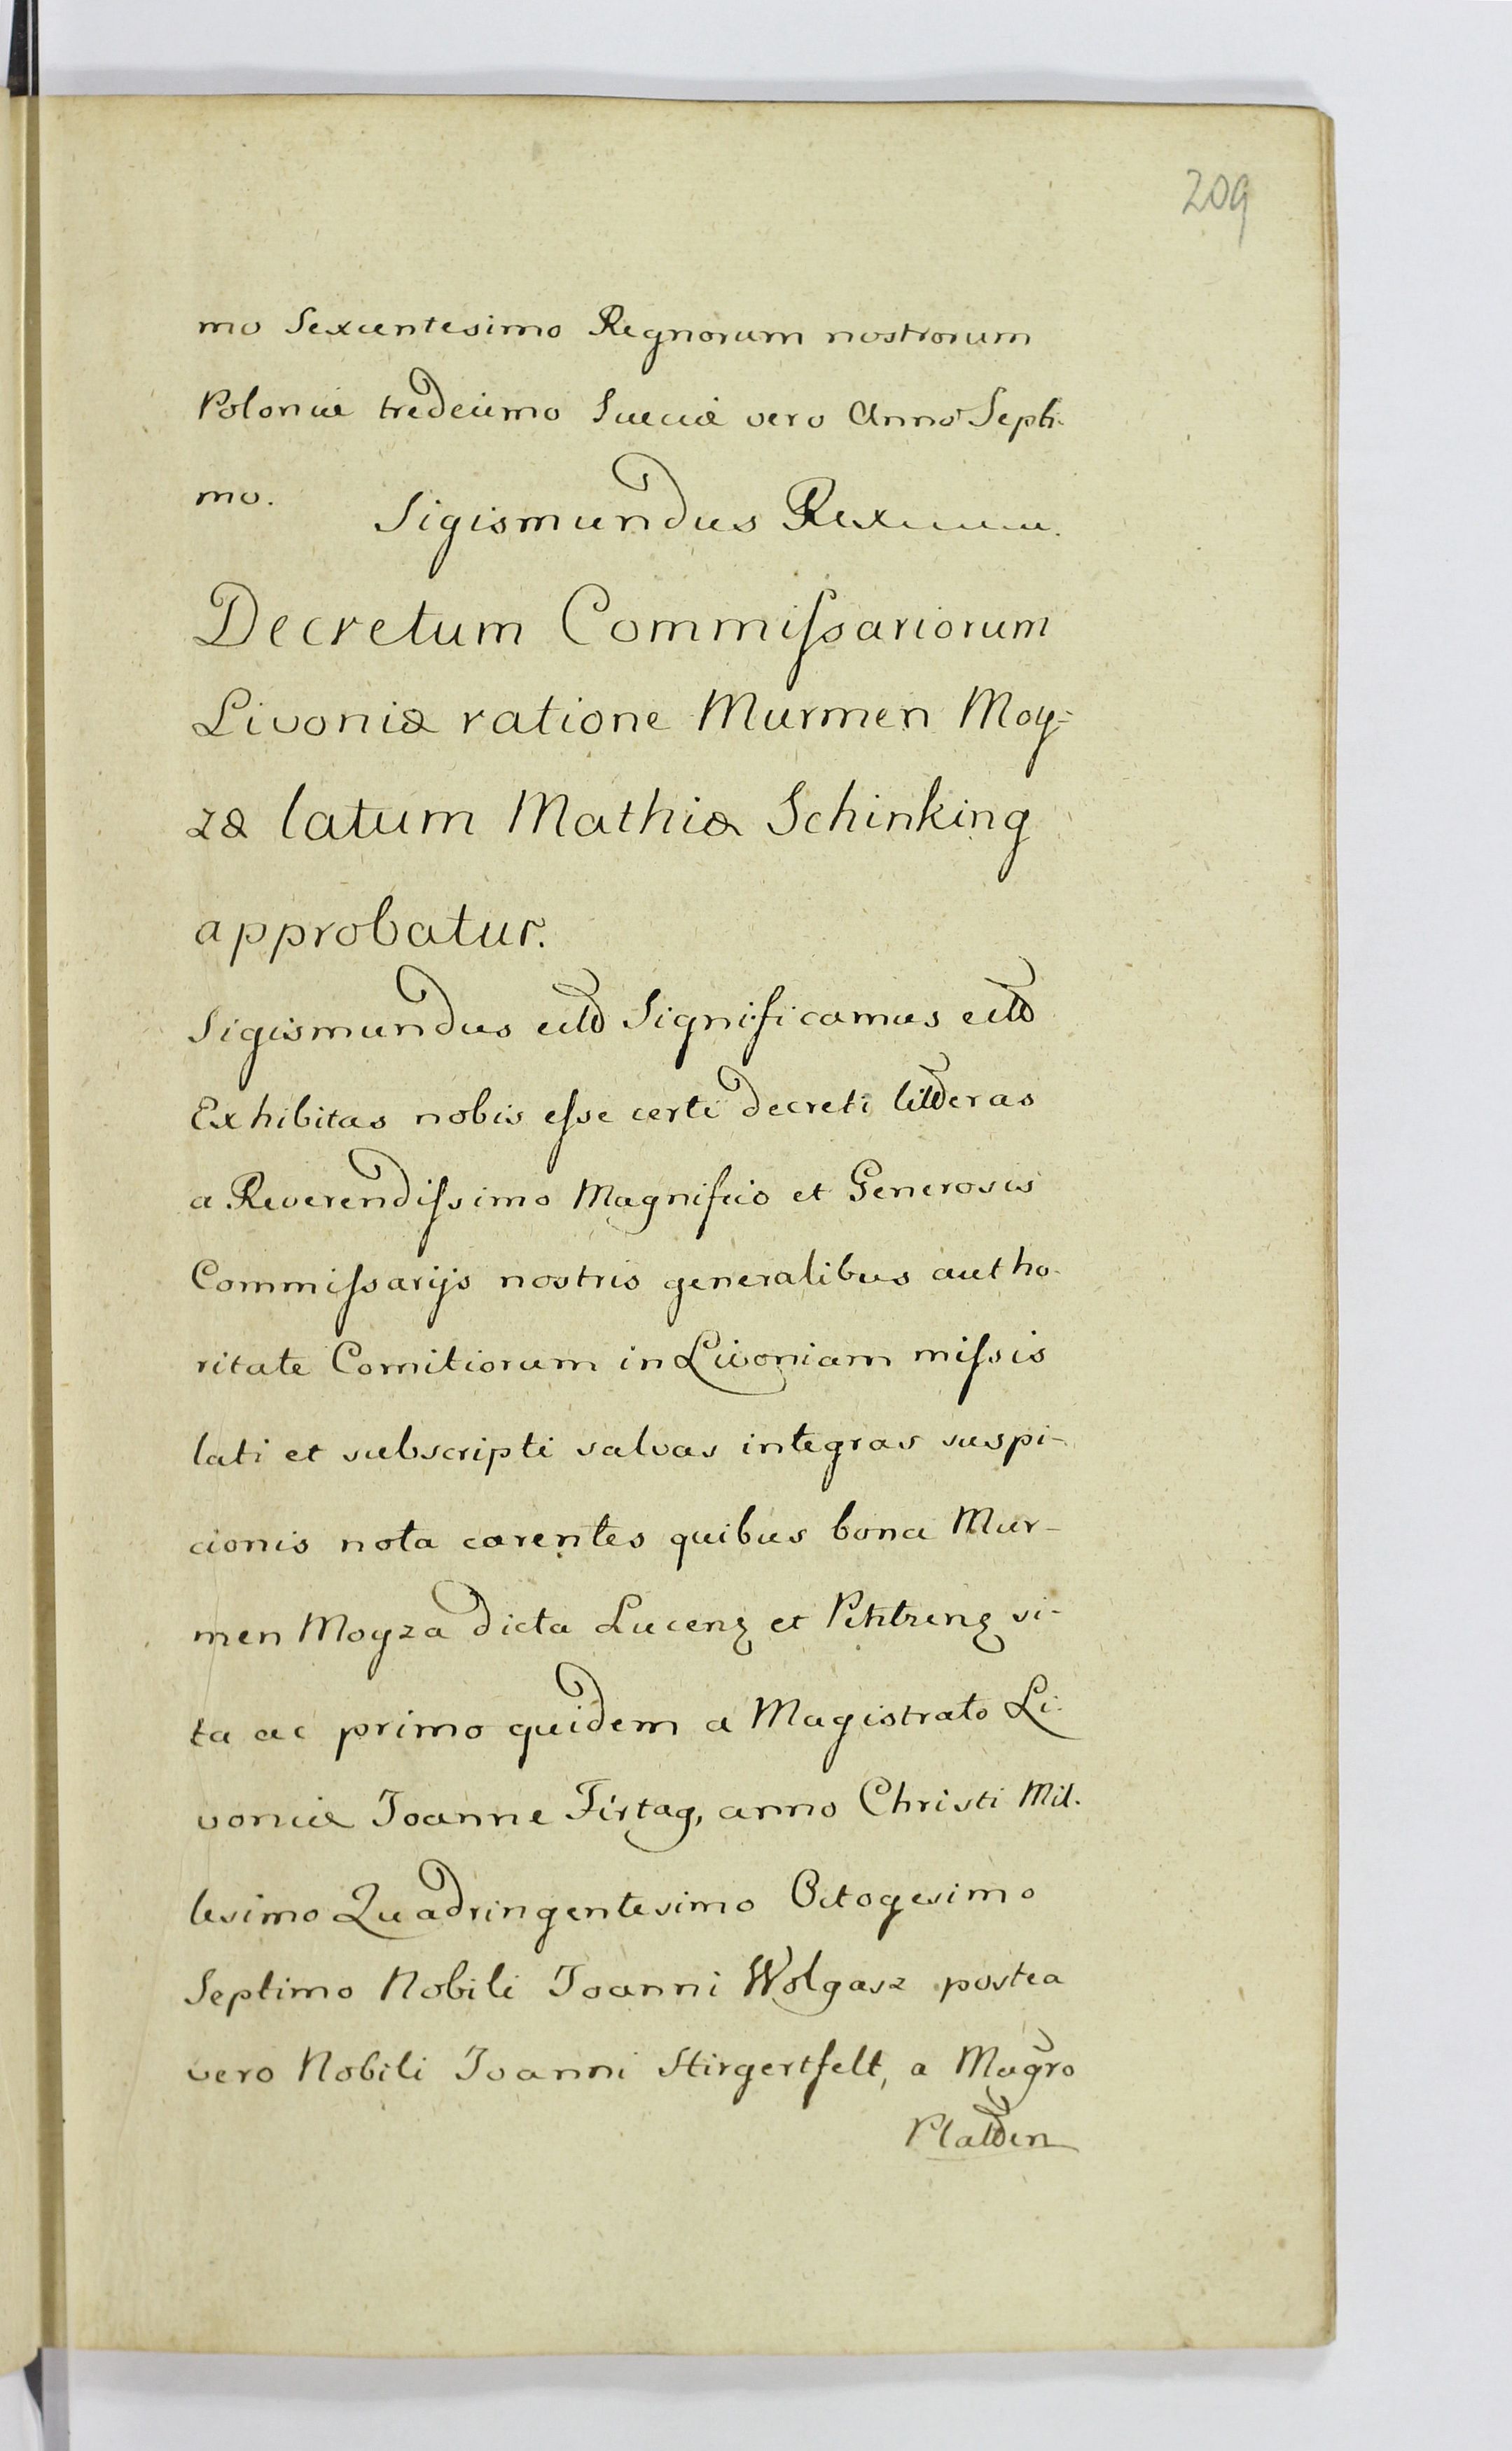 209
mo Sexcentesimo Regnorum nostrorum
Poloniæ tredecimo Sueciæ vero Anno Septi-
mo.
Sigismundus Rex
Decretum Commiſsariorum
Livoniæ ratione Murmen Moy=
zæ latum Mathiæ Schinking
approbatur.
Sigismundus ettt Significamus ettt
Exhibitas nobis eſse certi decreti litteras
a Reverendiſsimo Magnifico et Generosis
Commiſsarijs nostris generalibus autho-
ritate Comitiorum in Livoniam miſsis
lati et subscripti salvas integras suspi-
cionis nota carentes quibus bona Mur-
men Moyza dicta Lucenẓ et si-
ta ac primo quidem a Magistrato Li-
voniæ Joanne Firtag, anno Christi Mil-
lesimo Quadringentesimo Octogesimo
Septimo Nobili Joanni Wolgasz postea
vero Nobili Joanni Stirgertfelt, a Magro